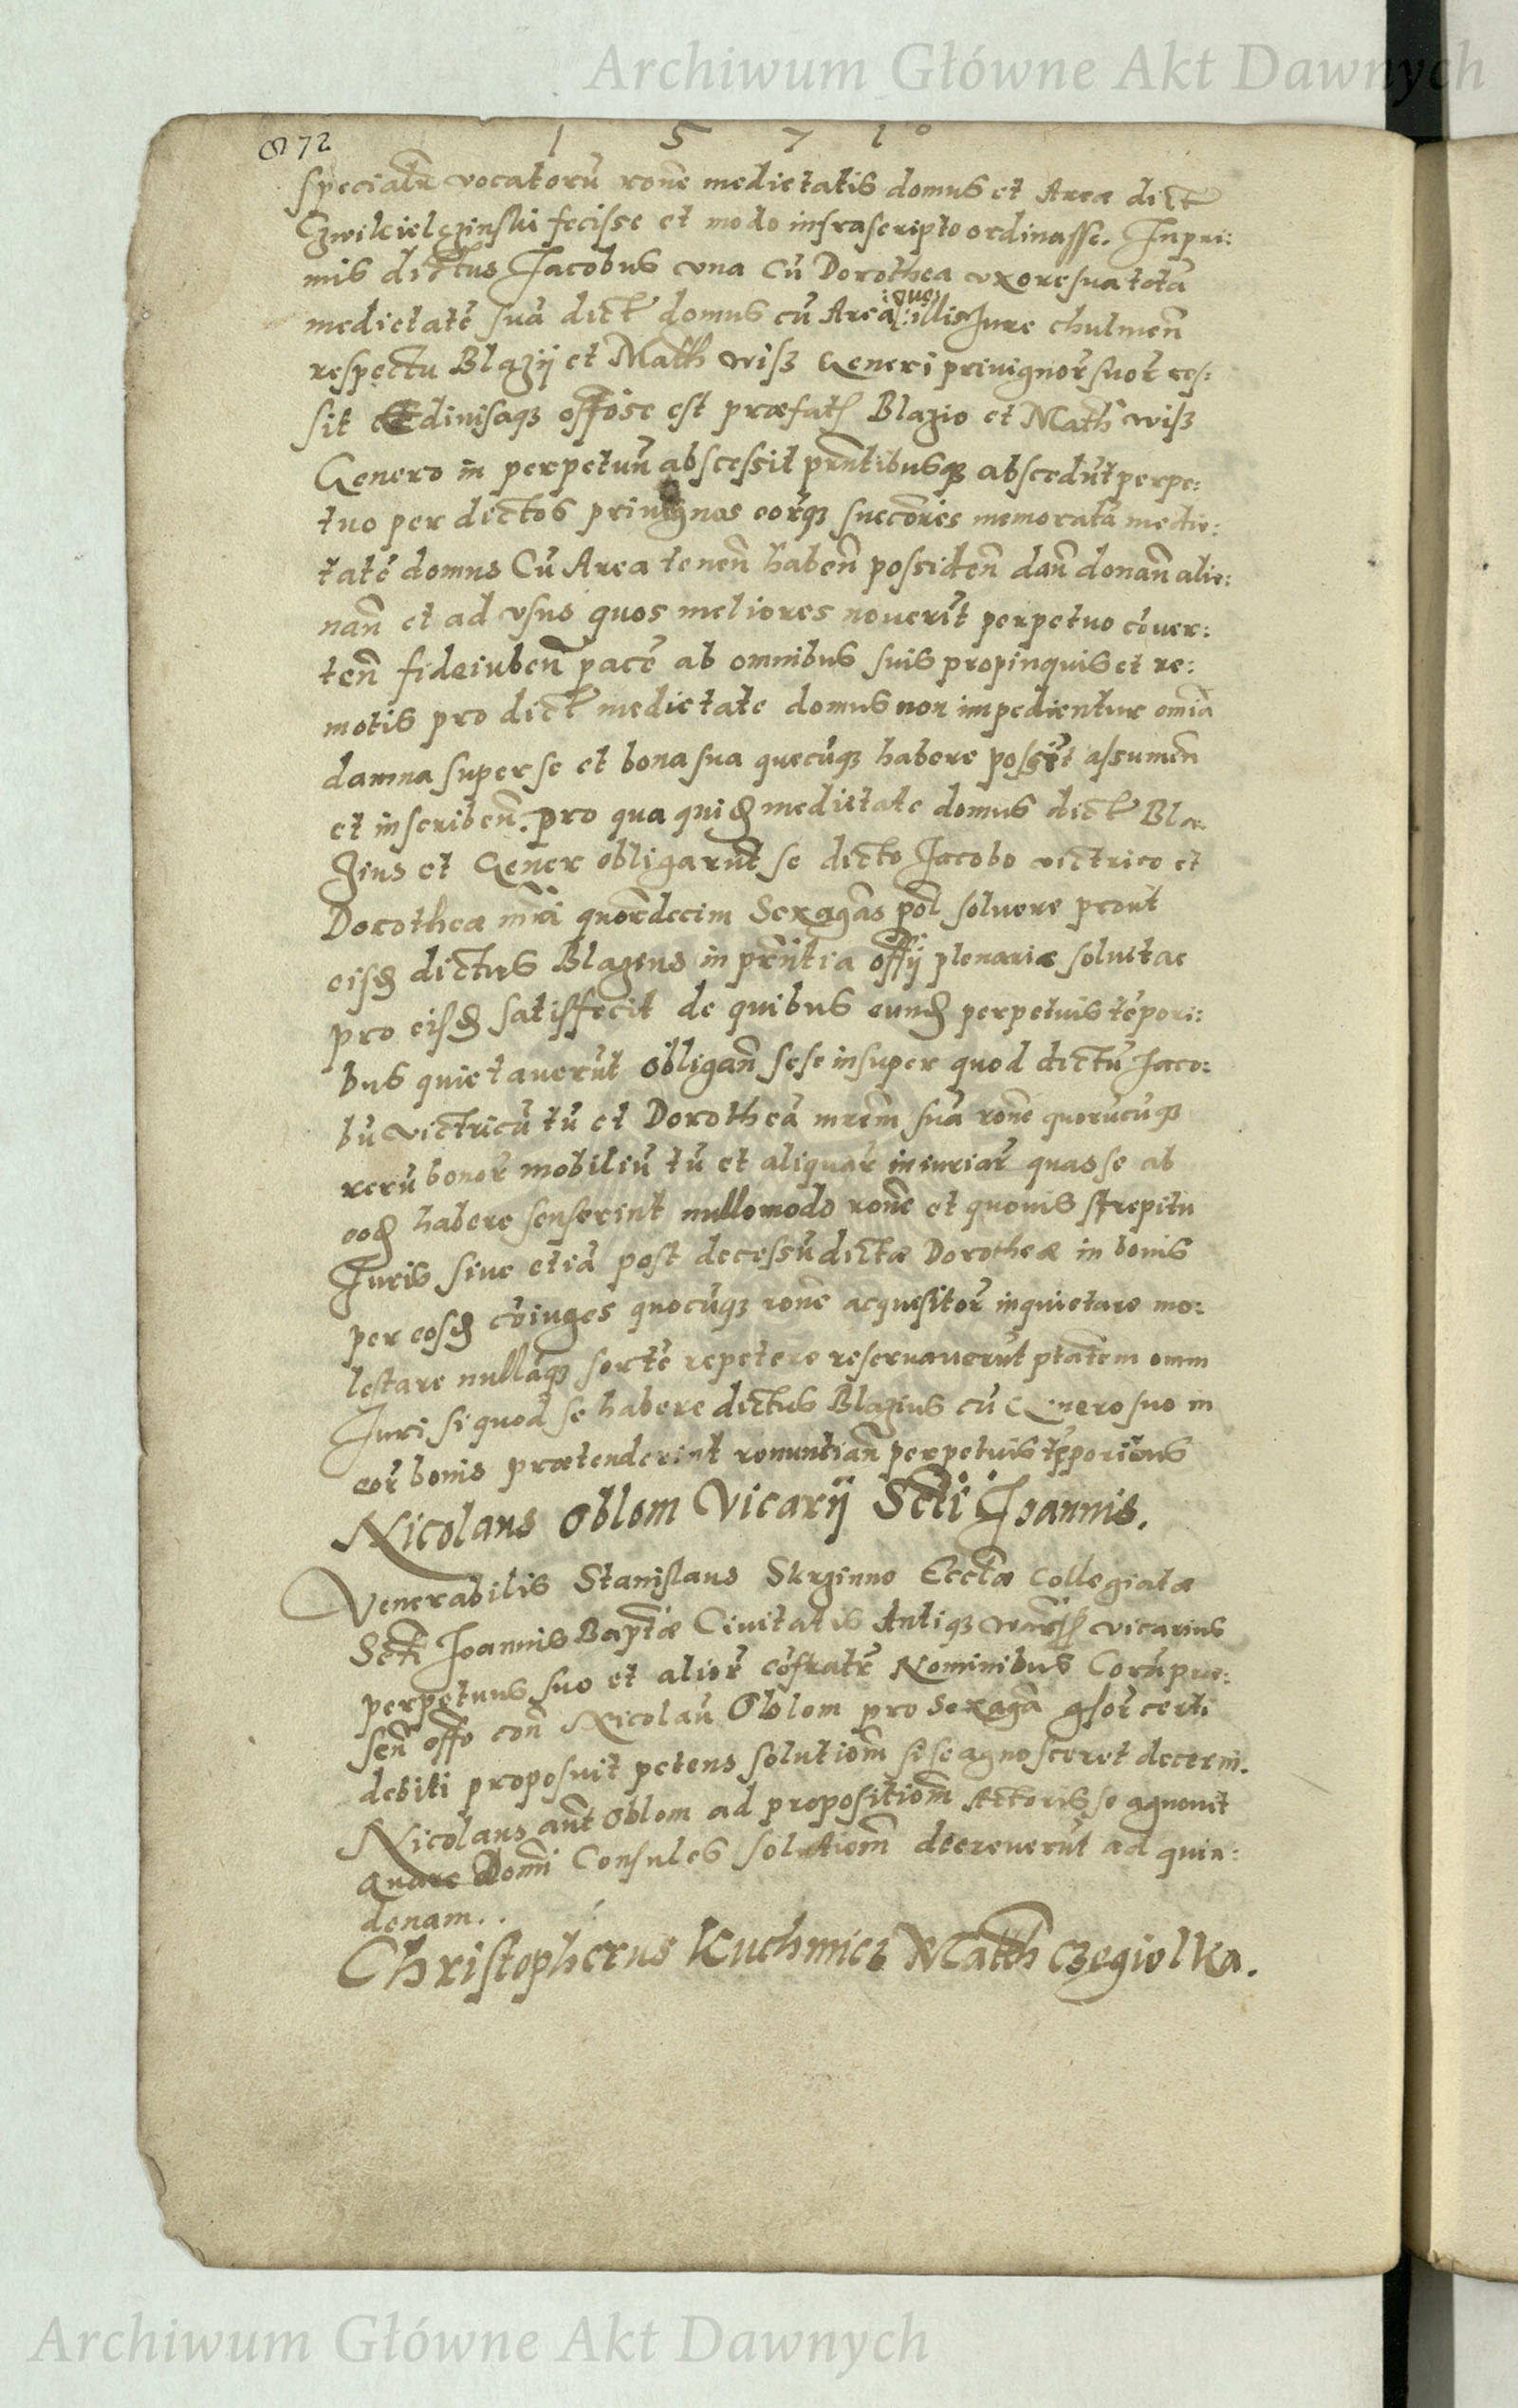 Archiwum Główne Akt Dawnych
872 1 5 7 1°
specialr vocatorū rone medietatis domus et Area dict
Czwikielczinski fecisse et modo infrascripto ordinasse. Inpri:
mis dictus Jacobus vna Cū Dorothea vxore sua totā
medietatē suā dict domus cū Area quo illis Jure chulmeñ
respectu Blazÿ et Math wisz Generi priuignor suor ces:
sit diuisaqʒ offose est præfat Blazio et Math wisz
Genero in perpetuū abscessit pñtibusqʒ abscedūt perpe:
tuo per dictos priuignos eorqʒ succōres memoratā medie:
tatē domus Cū Area teneñ habeñ possideñ dañ donañ alie:
nañ et ad vsus quos meliores nouerīt perpetuo cōuer:
teñ fideiubeñ pacē ab omnibus suis propinquis et re:
motis pro dict medietate domus non impedientur omīa
damna super se et bona sua quecūqʒ habere possīt assumeñ
et inscribeñ. pro qua quid medietate domus dict Bla
zius et Gener obligarūt se dicto Jacobo victrico et
Dorothea mri quordecim Sexagas pol soluere prout
eisd dictus Blazeus in pñtia offÿ plenarie soluit ac
pro eisd satisffecit de quibus eund perpetuis tēpori:
bus quietauerūt obligañ sese insuper quod dictū Jaco:
bū victricū tū et Dorotheā mrem suā rone quorūcūqʒ
rerū bonor mobiliū tū et aliquar iniuriar quas se ab
eod habere senserint nullo modo rone et quouis strepitu
Juris siue etiā post decessū dictæ Dorotheæ in bonis
per eosd cōiuges quocūqʒ rone acquisitor inquietare mo:
lestare nullāqʒ sortē repetere reseruauerūt ptatem omni
Juri si quod se habere dictus Blazius cū Genero suo in
eor bonis prætenderint renuntiañ perpetuis tēporibus
Nicolaus Oblom Vicarÿ Scti Joannis.
Venerabilis Stanislaus Skrzinno Ecctæ Collegiatæ
Scti Joannis Baptæ Ciuitatis Antiqʒ vicarius
perpetuus suo et alior cōfratr Nominibus Corā præ:
señ offo coñ Nicolaū Oblom pro Sexaga gsor certi
debiti proposuit petens solutiom si se agnosceret decerni.
Nicolaus aut Oblom ad propositiom Actoris se agnouit
Quare Domi Consules solutiom decreuerūt ad quin:
denam..
Christopherus Kuchmicz Math Czegiolka.
Archiwum Główne Akt Dawnych